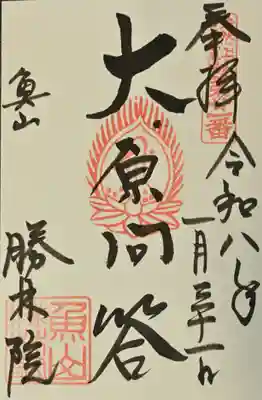 奉拝
令和八年
一月三十一日
大原問答
魚山
勝林院
魚山